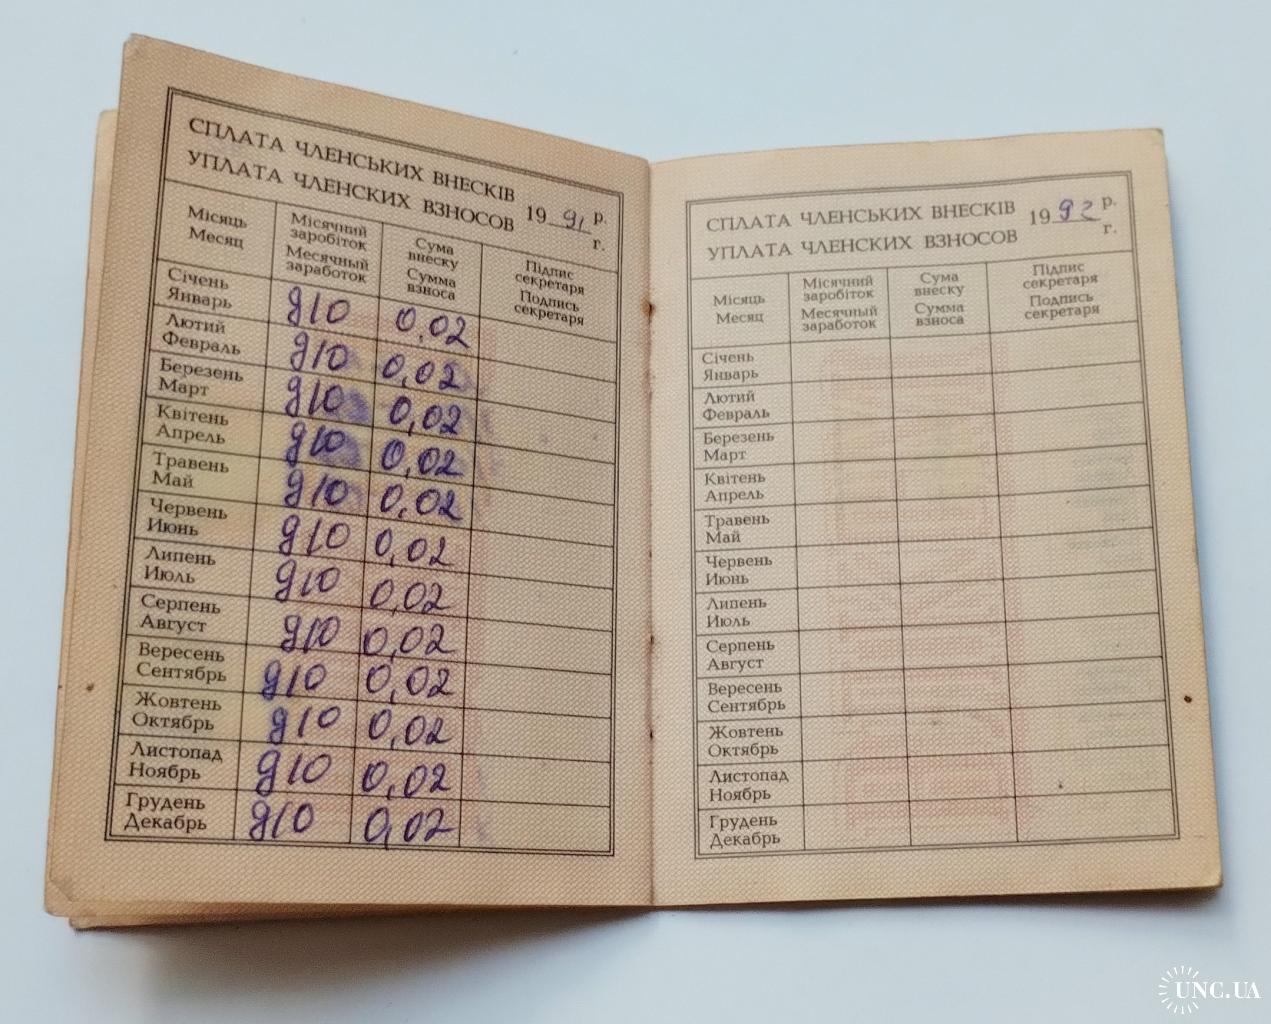 СПЛАТА ЧЛЕНСЬКИХ ВНЕСКІВ
УПЛАТА ЧЛЕНСКИХ ВЗНОСОВ
19 91 р.
г.
Місяць
Месяц
Місячний
заробіток
Месячный
заработок
Сума
внеску
Сумма
взноса
Підпис
секретаря
Подпись
секретаря
Січень
Январь
д/о 0,02
Лютий
Февраль
д/о 0,02
Березень
Март
д/о 0,02
Квітень
Апрель
д/о 0,02
Травень
Май
д/о 0,02
Червень
Июнь
д/о 0,02
Липень
Июль
д/о 0,02
Серпень
Август
д/о 0,02
Вересень
Сентябрь
д/о 0,02
Жовтень
Октябрь
д/о 0,02
Листопад
Ноябрь
д/о 0,02
Грудень
Декабрь
д/о 0,02
СПЛАТА ЧЛЕНСЬКИХ ВНЕСКІВ
УПЛАТА ЧЛЕНСКИХ ВЗНОСОВ
19 92 р.
г.
Місяць
Месяц
Місячний
заробіток
Месячный
заработок
Сума
внеску
Сумма
взноса
Підпис
секретаря
Подпись
секретаря
Січень
Январь
Лютий
Февраль
Березень
Март
Квітень
Апрель
Травень
Май
Червень
Июнь
Липень
Июль
Серпень
Август
Вересень
Сентябрь
Жовтень
Октябрь
Листопад
Ноябрь
Грудень
Декабрь
UNC.UA